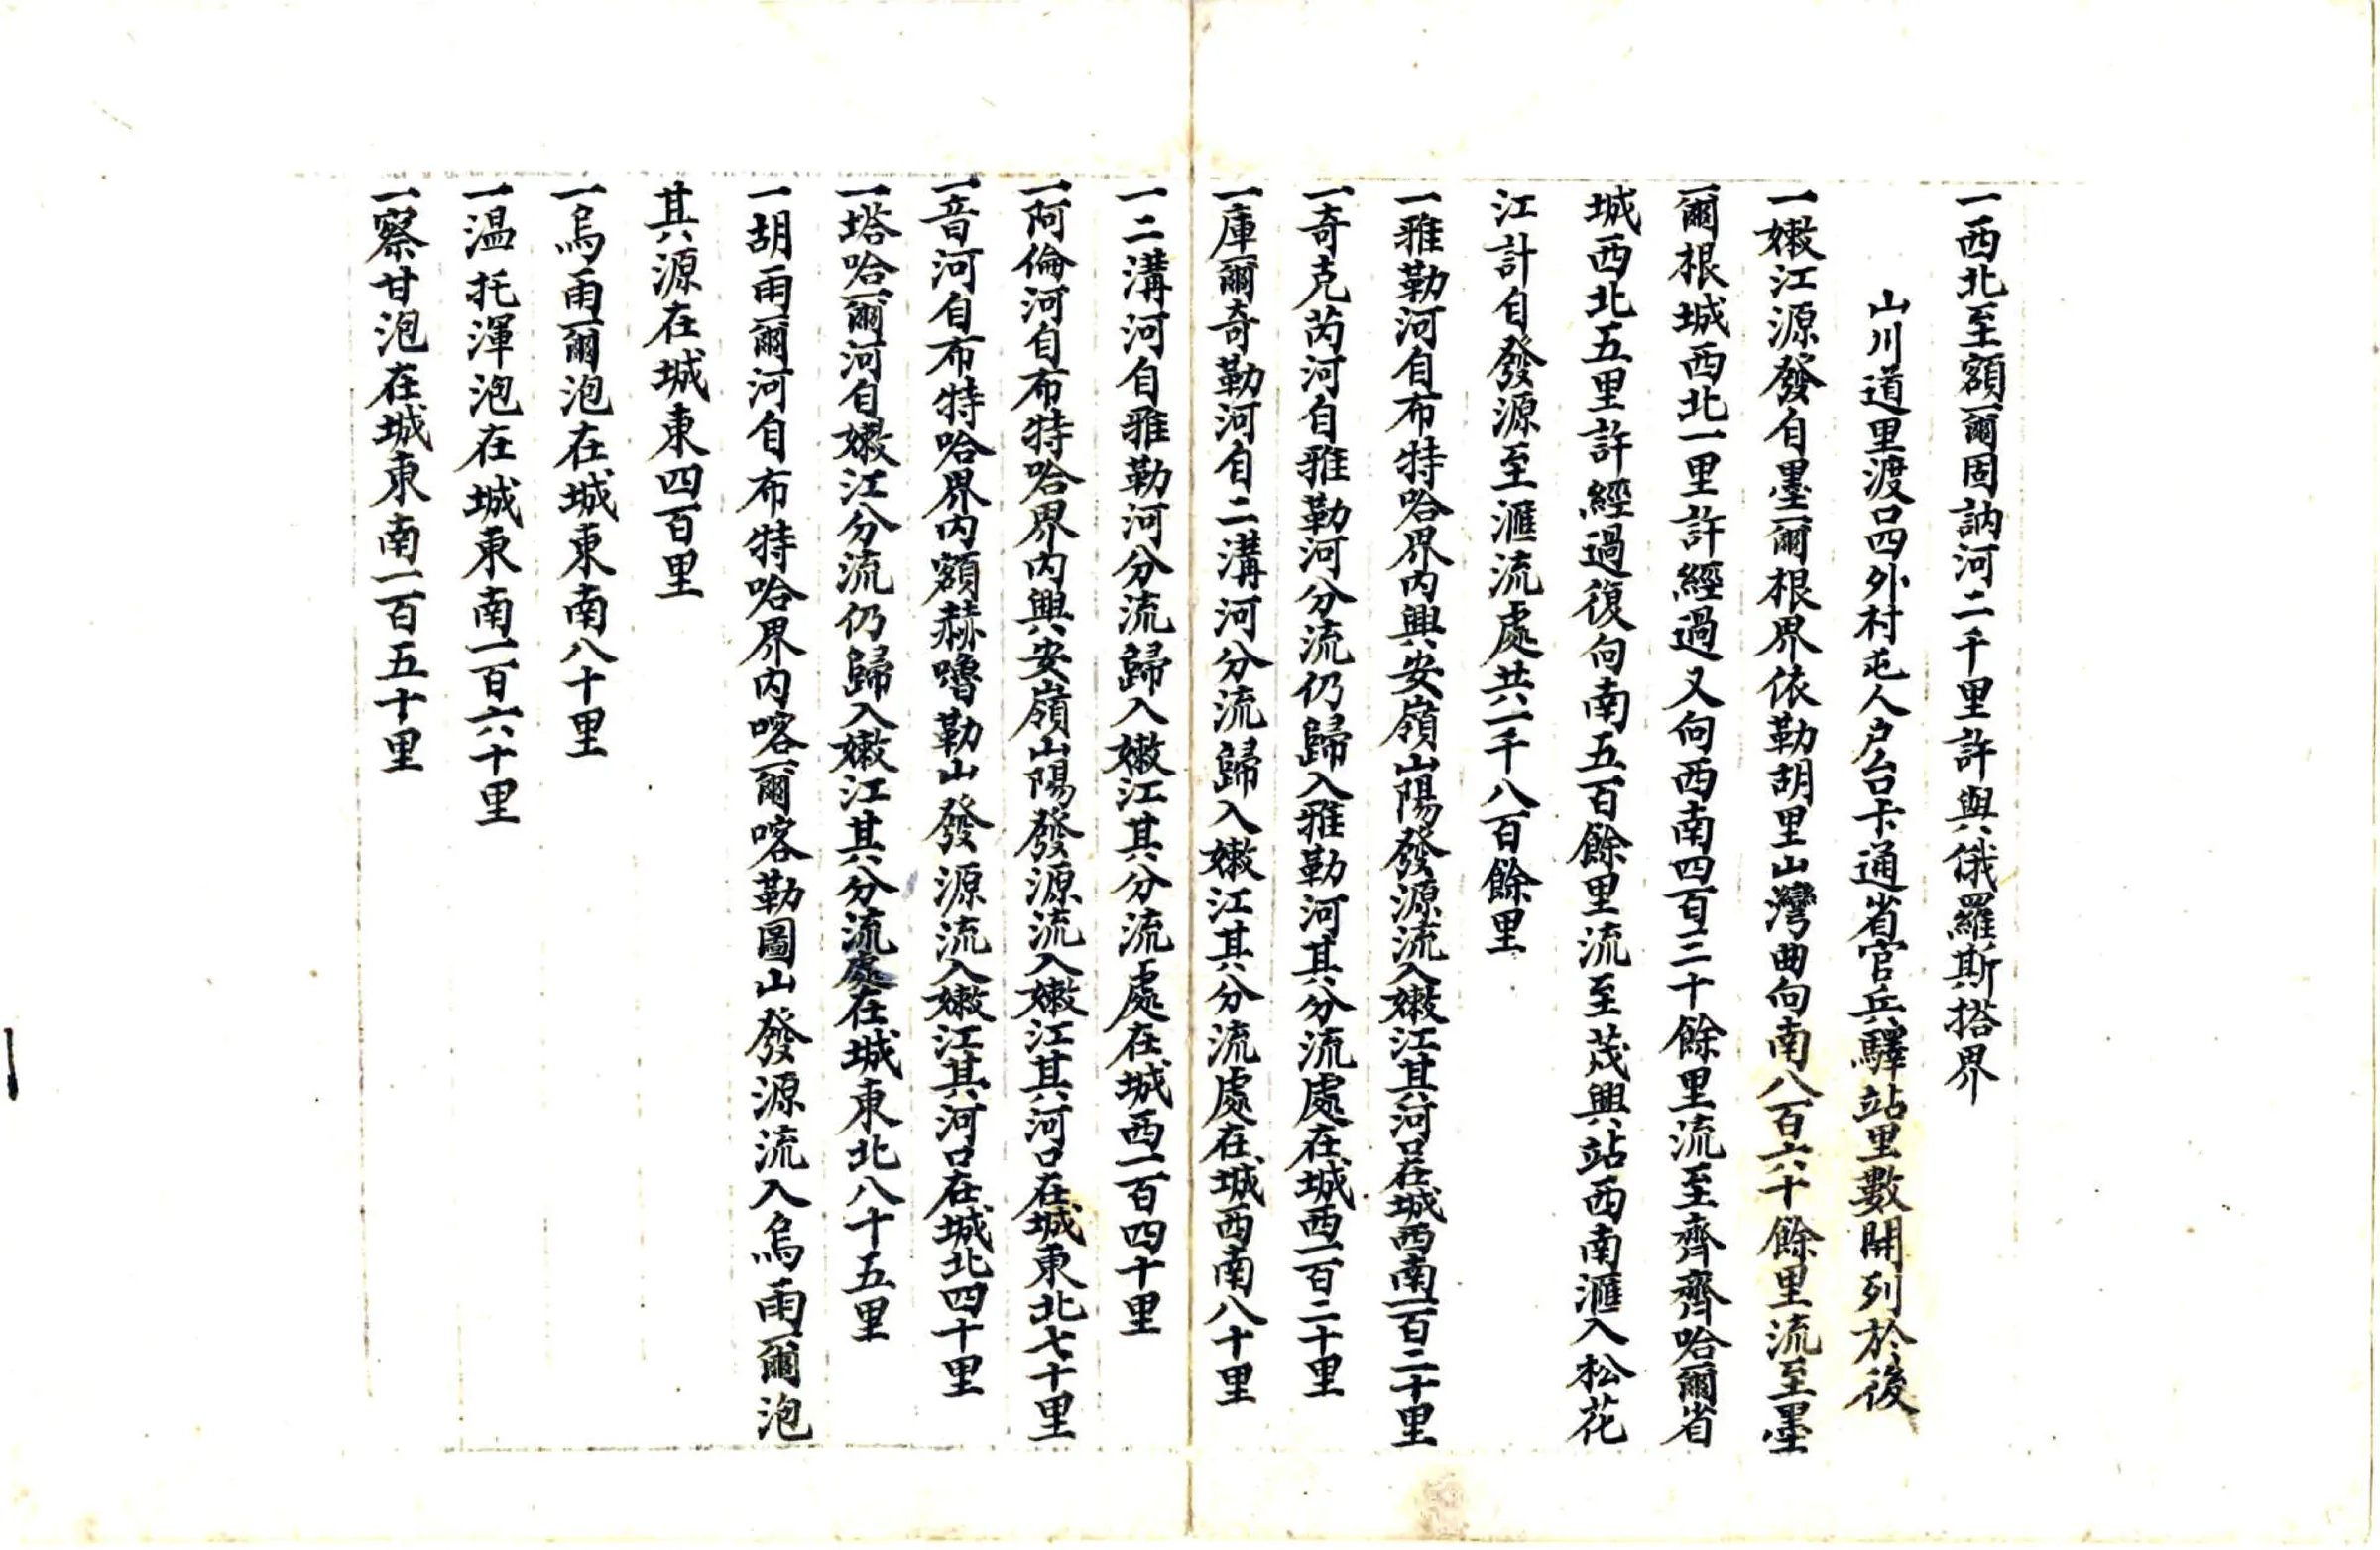 一西北至額爾固訥河二千里許與俄羅斯搭界
山川道里渡口四外村屯人戶台卡通省官兵驛站里數開列於後
一嫩江源發自墨爾根界依勒胡里山灣曲向南八百六十餘里流至墨
爾根城西北一里許經過又向西南四百二十餘里流至齊齊哈爾省
城西北五里許經過復向南五百餘里流至茂興站西南滙入松花
江計自發源至滙流處共一千八百餘里
一雅勒河自布特哈界內興安嶺山陽發源流入嫩江其河口在城西南一百二十里
一奇克芮河自雅勒河分流仍歸入雅勒河其分流處在城西一百二十里
一庫爾奇勒河自二溝河分流歸入嫩江其分流處在城西南八十里
一二溝河自雅勒河分流歸入嫩江其分流處在城西一百四十里
一阿倫河自布特哈界內興安嶺山陽發源流入嫩江其河口在城東北七十里
一音河自布特哈界內額赫嚕勒山發源流入嫩江其河口在城北四十里
一塔哈爾河自嫩江分流仍歸入嫩江其分流處在城東北八十五里
一胡雨爾河自布特哈界內喀爾喀勒圖山發源流入烏雨爾泡
其源在城東四百里
一烏雨爾泡在城東南八十里
一温托渾泡在城東南一百六十里
一察甘泡在城東南一百五十里